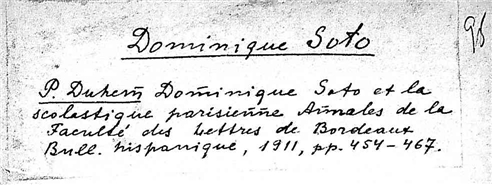 Dominique Soto
98
P. Duhem Dominique Soto et la
scolastique parisienne Annales de la
Faculté des Lettres de Bordeaux
Bull. hispanique, 1911, pp. 454-467.